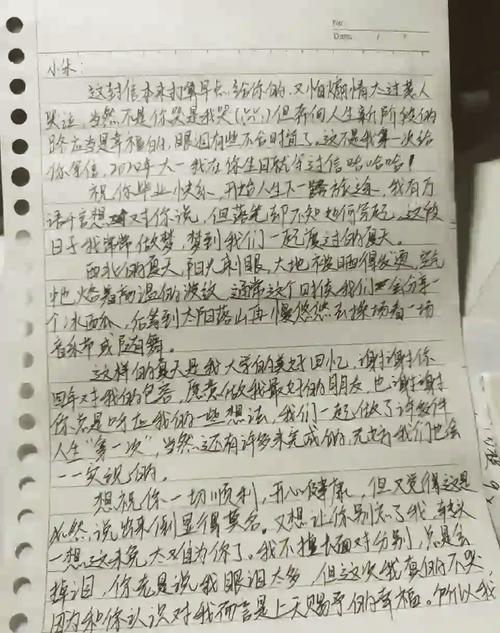 No:
Date: / /
小朱:
这封信本来打算早点给你的,又怕煽情太过美人
哭泣,当然不是你哭是我哭(bushi)但奔向人生新阶段的
路应当是幸福的,眼泪有些不合时宜了。这不是我第一次给
你写信,2020年大一我在你生日就写过信哈哈哈!
祝你毕业快乐,开始人生下一段旅途,我有万
语千言想对你说,但落笔却不知如何写起,这段
日子我常常做梦,梦到我们一起度过的夏天。
西北的夏天,阳光刺眼,大地被晒得发烫,空气
中熔着高温的波纹,通常这个时候我们会分享一
个冰西瓜,后等到太阳落山再慢悠悠去操场看一场
音乐节或尾舞。
这样的夏天是我大学的美好回忆,谢谢你
四年对我的包容,愿意做我最好的朋友,也谢谢
你总是响应我的一些想法,我们一起做了许多件
人生“第一次”,当然还有许多未完成的,无妨我们也会
一一实现的。
想祝你一切顺利,开心健康,但又觉得这是
必然,说出来倒显得莫名。又想让你别忘了我,转头
一想这未免太对自为你了。我不擅长面对分别,总是会
掉泪,你老是说我眼泪太多,但这次我真的不哭,
因为和你认识对我而言是上天赐予的幸福。所以我